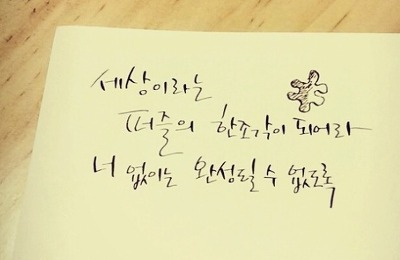 세상이라는
퍼즐의 한조각이 되어라
너 없이는 완성될 수 없도록